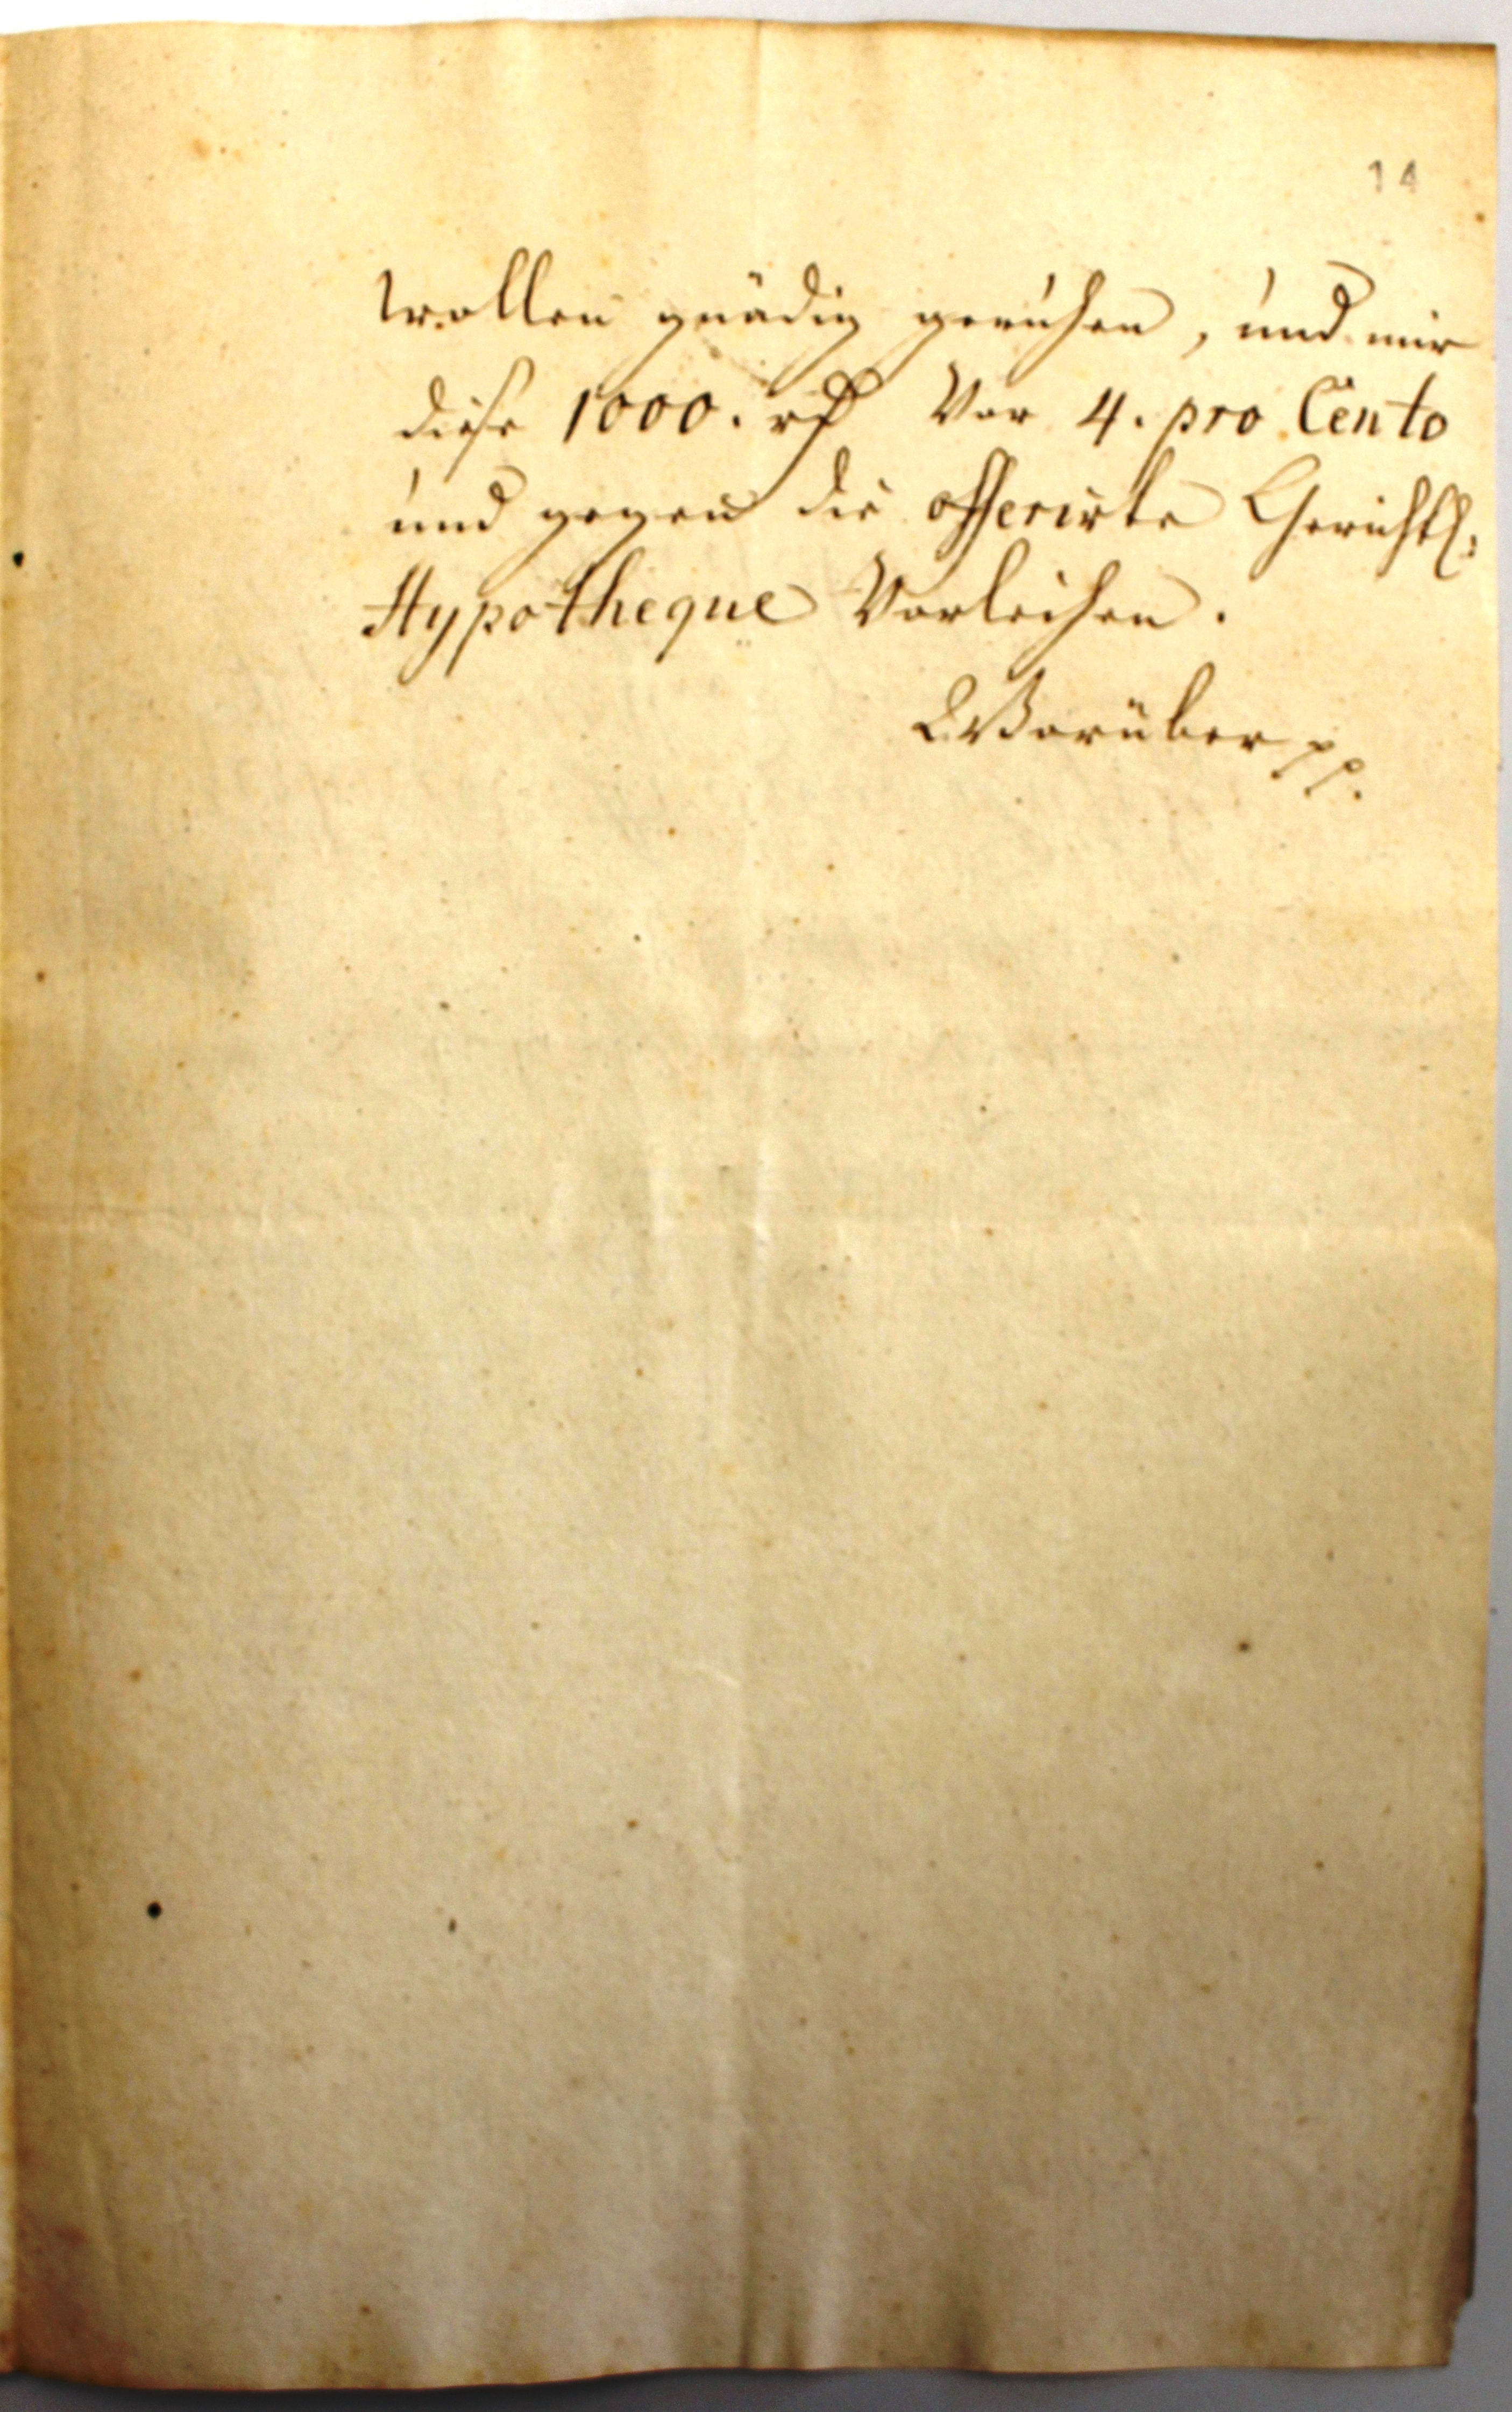 14
wollen gnädig geruhen, und mir
diese 1000. rth Vor 4. pro Cento
und gegen die offerirte Gerichtl:
Hypotheque Vorleihen.
Worüber pp.